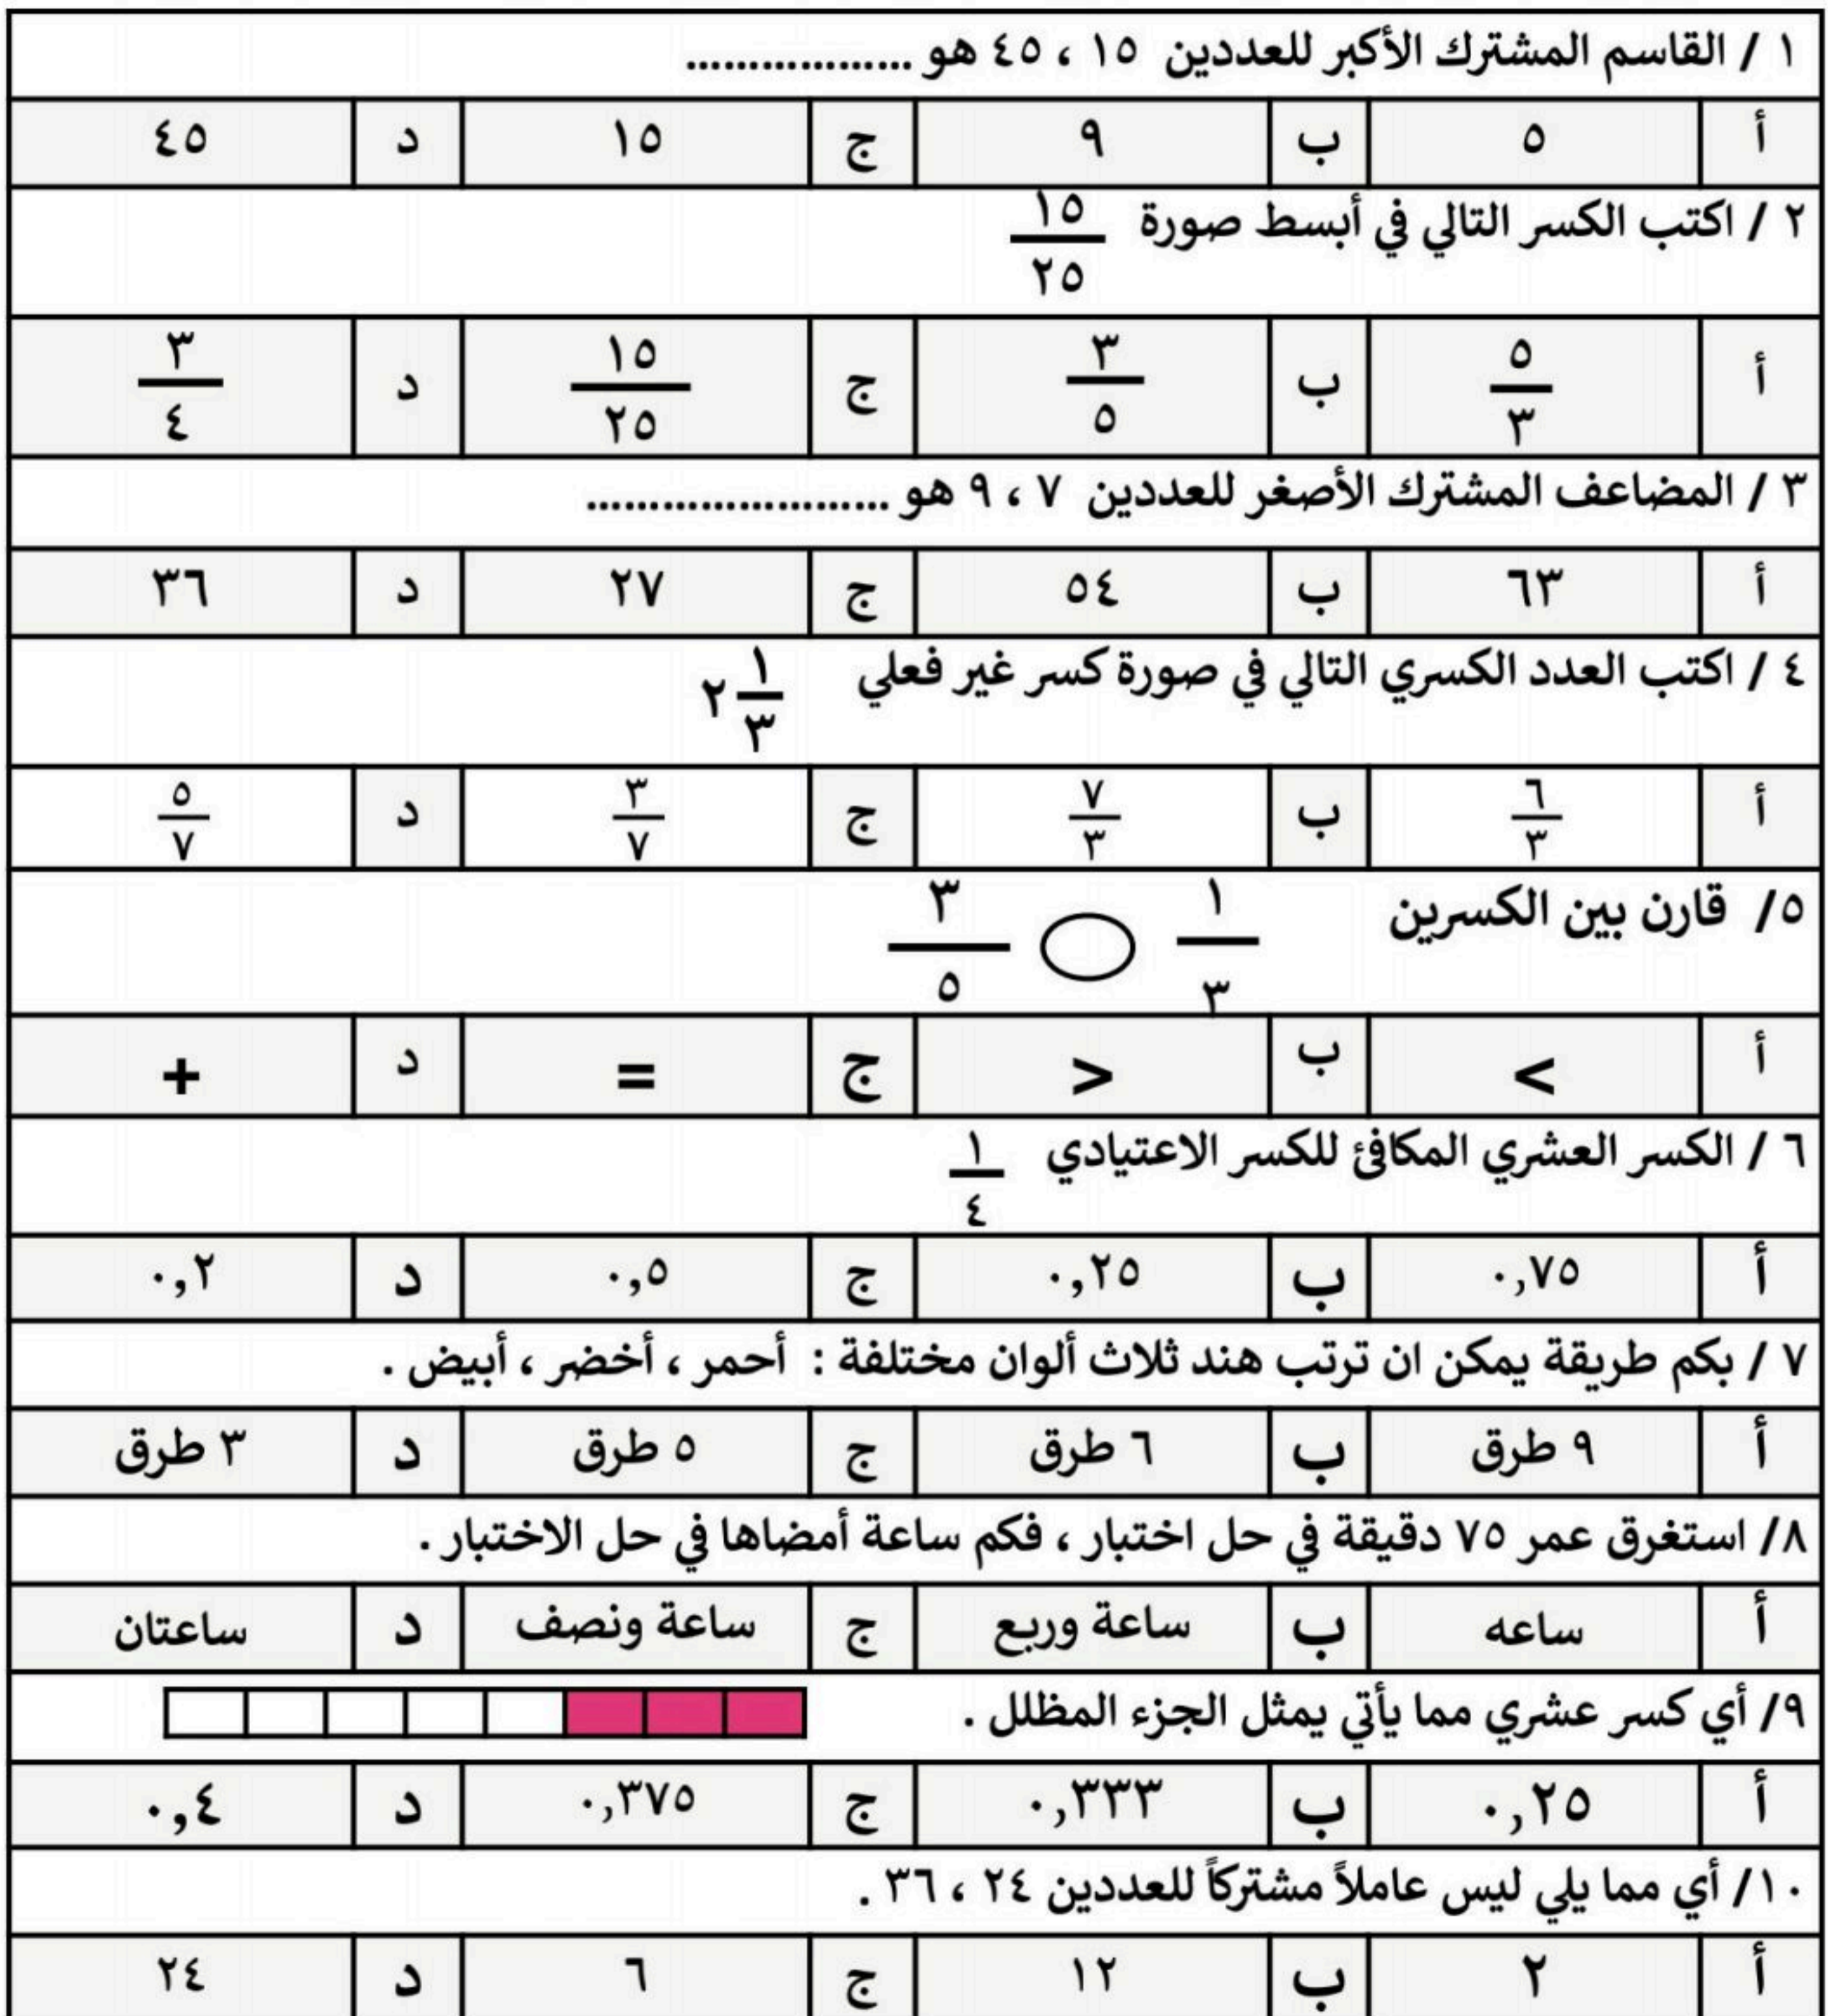 ١ / القاسم المشترك الأكبر للعددين ١٥ ، ٤٥ هو ..................
أ ٥ ب ٩ ج ١٥ د ٤٥
٢ / اكتب الكسر التالي في أبسط صورة ١٥/٢٥
أ ٥/٣ ب ٣/٥ ج ١٥/٢٥ د ٣/٤
٣ / المضاعف المشترك الأصغر للعددين ٧ ، ٩ هو ........................
أ ٦٣ ب ٥٤ ج ٢٧ د ٣٦
٤ / اكتب العدد الكسري التالي في صورة كسر غير فعلي ٢ ١/٣
أ ٦/٣ ب ٧/٣ ج ٣/٧ د ٥/٧
٥/ قارن بين الكسرين ١/٣ ٣/٥
أ < ب > ج = د +
٦ / الكسر العشري المكافئ للكسر الاعتيادي ١/٤
أ ٠,٧٥ ب ٠,٢٥ ج ٠,٥ د ٠,٢
٧ / بكم طريقة يمكن ان ترتب هند ثلاث ألوان مختلفة : أحمر ، أخضر ، أبيض .
أ ٩ طرق ب ٦ طرق ج ٥ طرق د ٣ طرق
٨/ استغرق عمر ٧٥ دقيقة في حل اختبار ، فكم ساعة أمضاها في حل الاختبار .
أ ساعه ب ساعة وربع ج ساعة ونصف د ساعتان
٩/ أي كسر عشري مما يأتي يمثل الجزء المظلل .
أ ٠,٢٥ ب ٠,٣٣٣ ج ٠,٣٧٥ د ٠,٤
١٠/ أي مما يلي ليس عاملاً مشتركاً للعددين ٢٤ ، ٣٦ .
أ ٢ ب ١٢ ج ٦ د ٢٤